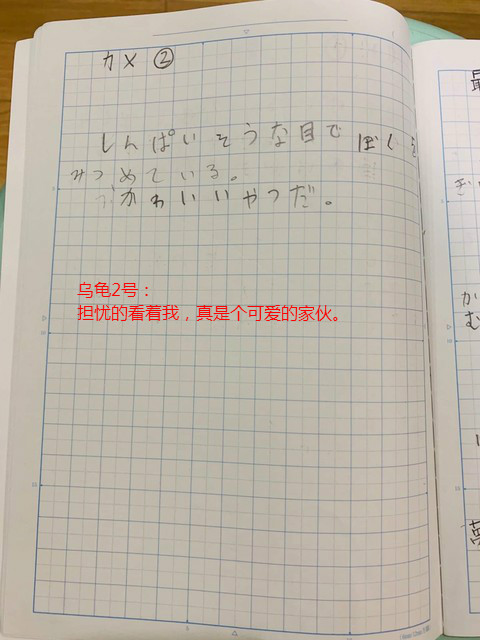 カメ②
しんぱいそうな目でぼくを
みつめている。
かわいいやつだ。
乌龟2号：
担忧的看着我，真是个可爱的家伙。
最
ぎ
か
む